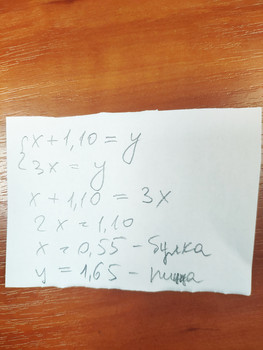 { x + 1,10 = y
3x = y
x + 1,10 = 3x
2x = 1,10
x = 0,55 - булка
y = 1,65 - пицца